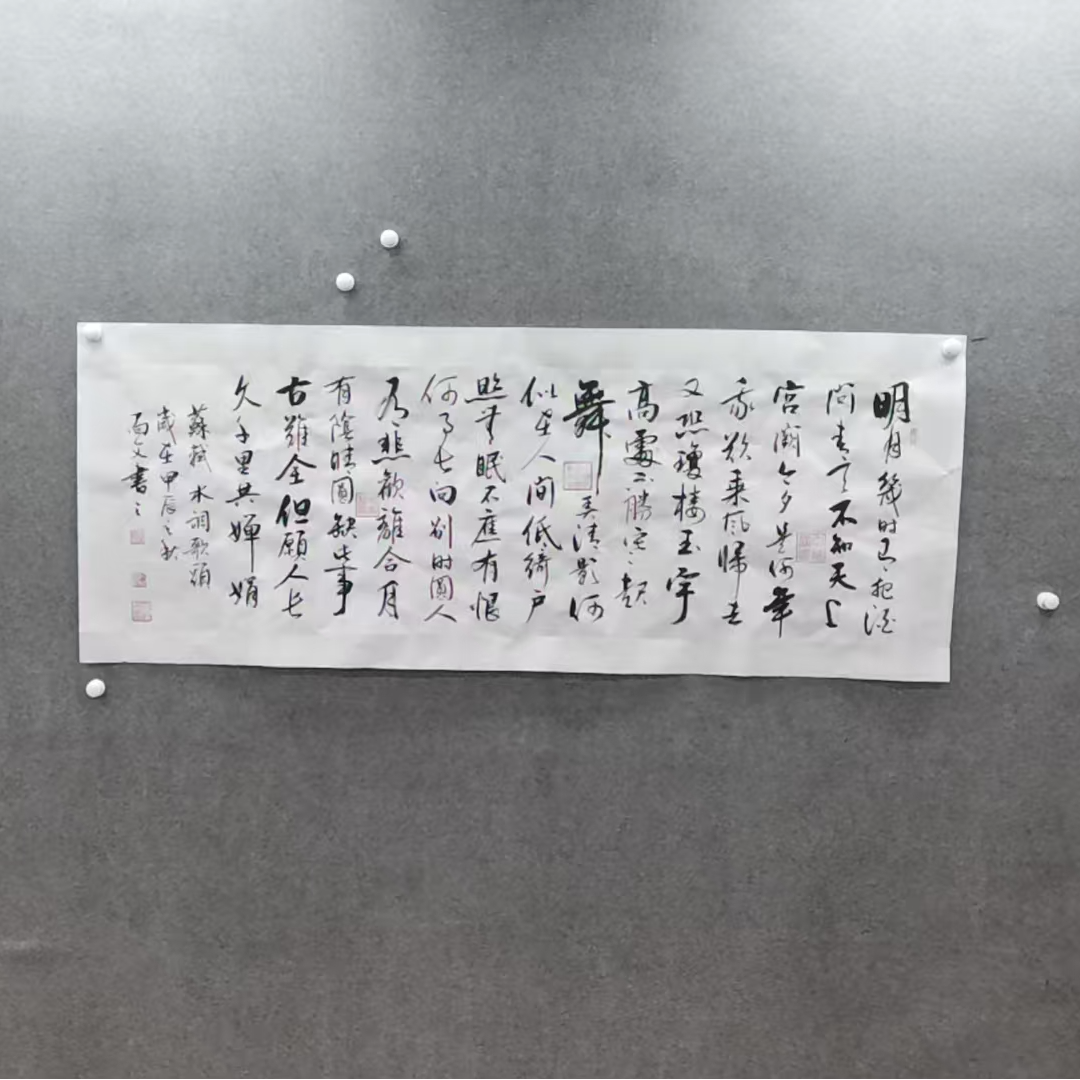 明月幾时有把酒
问青天不知天上
宫阙今夕是何年
我欲乘风歸去
又恐瓊楼玉宇
高處不勝寒起
舞弄清影何
似在人间低綺户
照無眠不應有恨
何事长向别时圓人
有悲歡離合月
有陰晴圓缺此事
古難全但願人长
久千里共嬋娟
蘇軾水調歌頭
歲在甲辰之秋
文書之